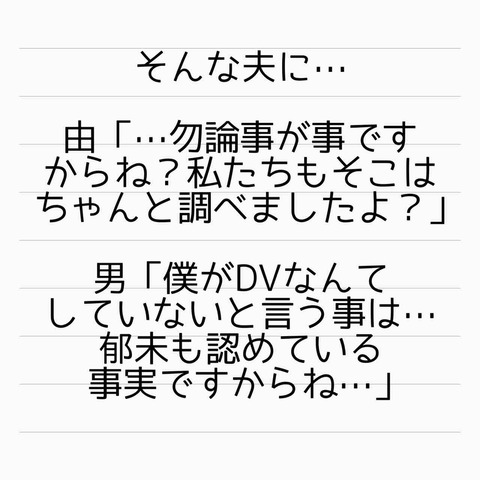 そんな夫に…
由「…勿論事が事です
からね？私たちもそこは
ちゃんと調べましたよ？」
男「僕がDVなんて
していないと言う事は…
郁未も認めている
事実ですからね…」